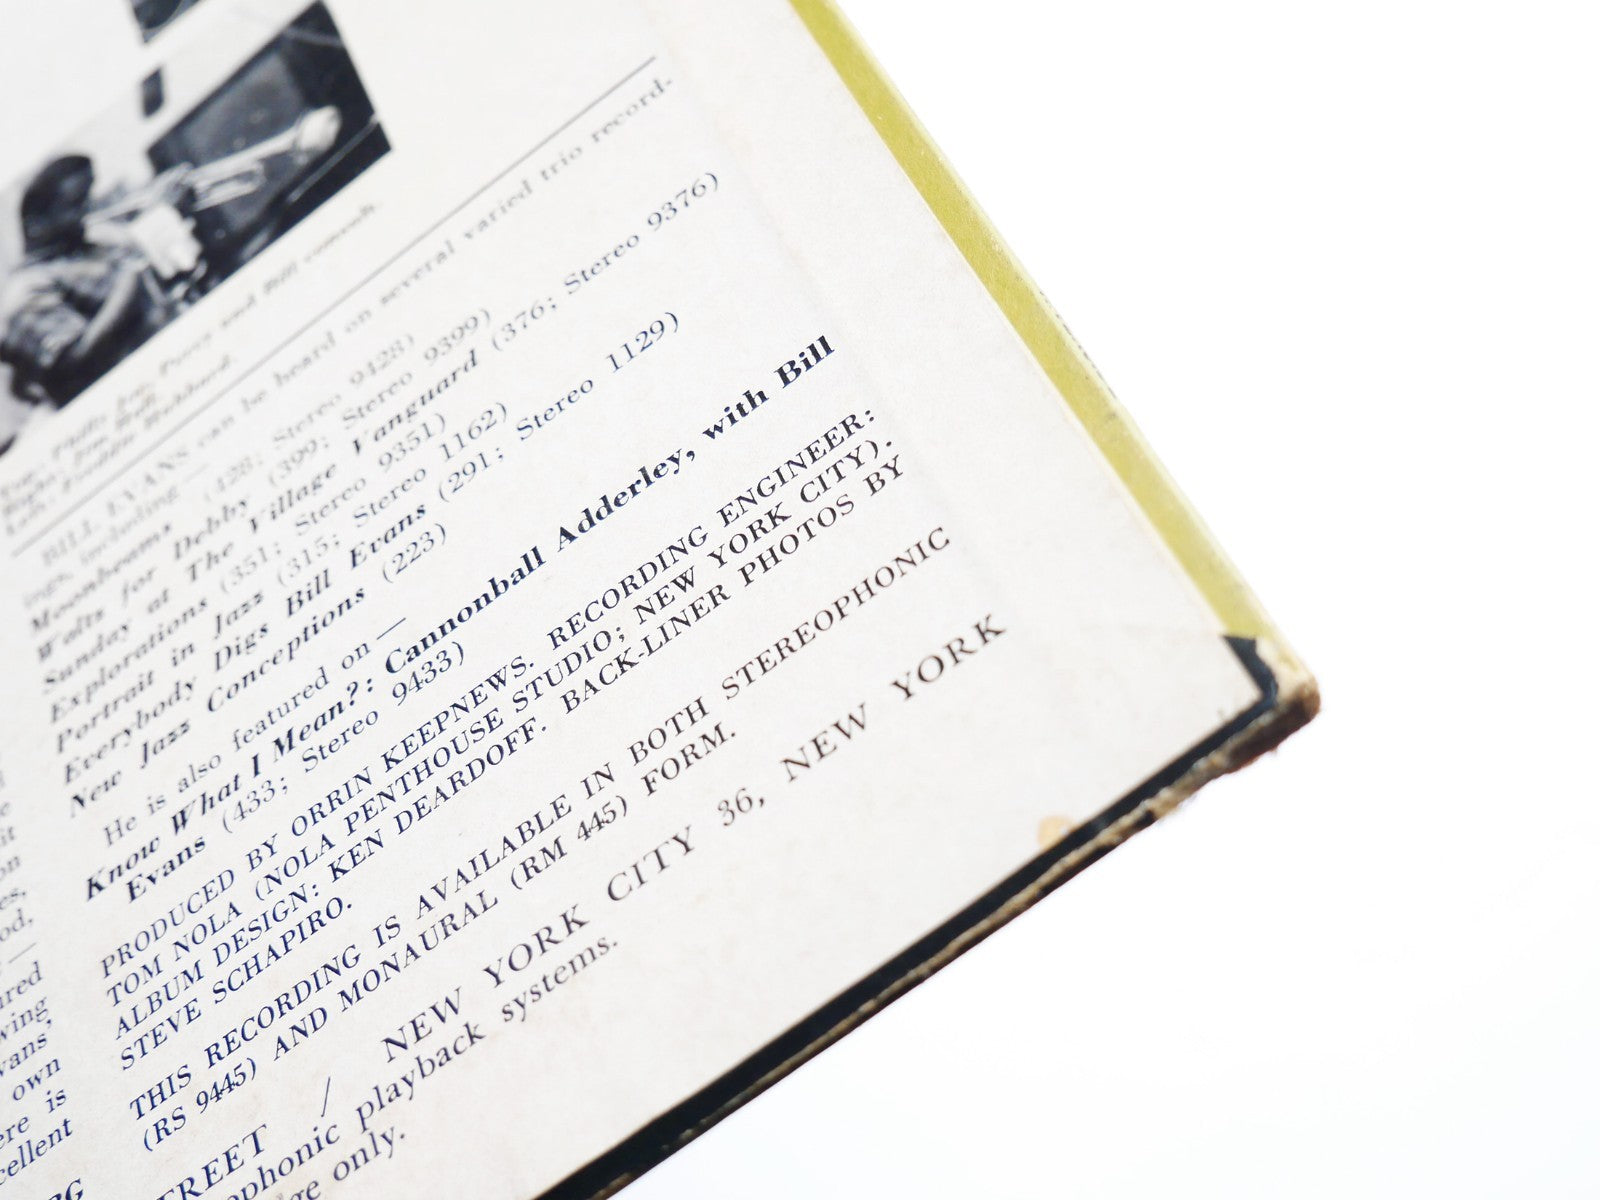 Top: Philly Joe, Percy and Bill consult.
Right: Jim Hall.
Left: Freddie Hubbard.
BILL EVANS can be heard on several varied trio record-
ings, including —
Moonbeams (428; Stereo 9428)
Waltz for Debby (399; Stereo 9399)
Sunday at The Village Vanguard (376; Stereo 9376)
Explorations (351; Stereo 9351)
Portrait in Jazz (315; Stereo 1162)
Everybody Digs Bill Evans (291; Stereo 1129)
New Jazz Conceptions (223)
He is also featured on —
Know What I Mean?: Cannonball Adderley, with Bill
Evans (433; Stereo 9433)
PRODUCED BY ORRIN KEEPNEWS. RECORDING ENGINEER:
TOM NOLA (NOLA PENTHOUSE STUDIO; NEW YORK CITY).
ALBUM DESIGN: KEN DEARDOFF. BACK-LINER PHOTOS BY
STEVE SCHAPIRO.
THIS RECORDING IS AVAILABLE IN BOTH STEREOPHONIC
(RS 9445) AND MONAURAL (RM 445) FORM.
TREET / NEW YORK CITY 36, NEW YORK
ophonic playback systems.
ge only.
it
on
es,
od,
—
ured
wing
vans'
own
ere is
cellent
RG